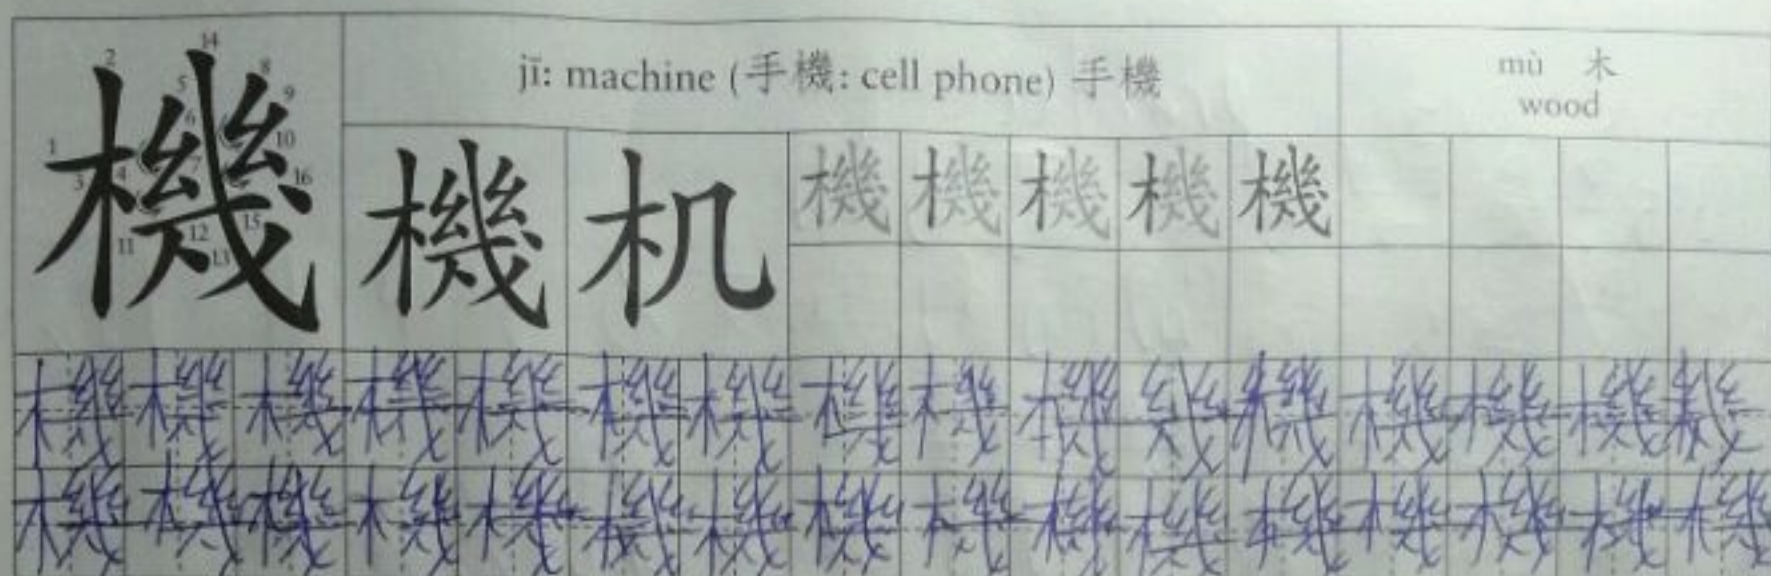 機
1 2 3 4 5 6 7 8 9 10 11 12 13 14 15 16
jī: machine (手機: cell phone) 手機
mù 木
wood
機 机 機 機 機 機 機
機 機 機 機 機 機 機 機 機 機 幾 機 機 機 機
機 機 機 機 機 機 機 機 機 機 機 機 機 機 機 機